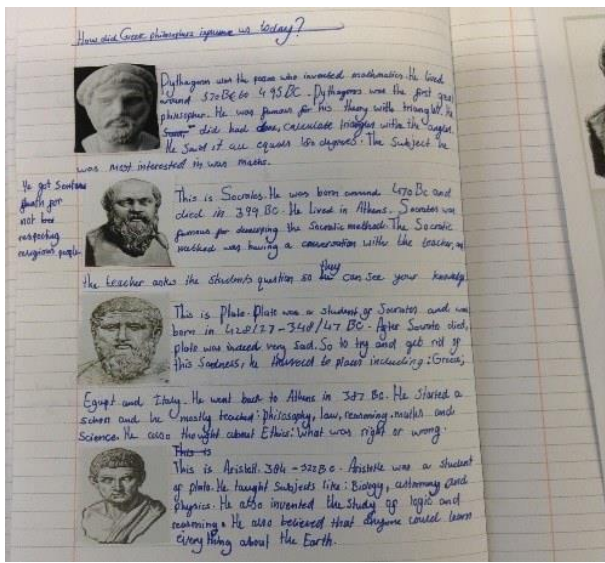 How did Greek philosophers influence us today?
Pythagoras was the person who invented mathematics. He lived
around 570 BC to 495 BC. Pythagoras was the first great
philosopher. He was famous for his theory with triangles. He
did had done, calculate triangles with the angles.
He said it all equals 180 degrees. The subject he
was most interested in was maths.
He got sentence
death for
not
respecting
religious people.
This is Socrates. He was born around 470 BC and
died in 399 BC. He lived in Athens. Socrates was
famous for developing the Socratic method. The Socratic
method was having a conversation with the teacher, as
the teacher asks the students question so they can see your knowledge
This is Plato. Plato was a student of Socrates and was
born in 428/27 - 348/47 BC. After Socrates died,
plato was indeed very sad. So to try and get rid of
this sadness, he travelled to places including: Greece,
Egypt and Italy. He went back to Athens in 387 BC. He started a
school and he mostly teached: philosophy, law, reasoning, maths and
Science. He also thought about Ethics: what was right or wrong.
This is
This is Aristotle. 384 - 322 BC. Aristotle was a student
of plato. He taught subjects like: Biology, astronomy and
physics. He also invented the study of logic and
reasoning. He also believed that anyone could learn
everything about the Earth.